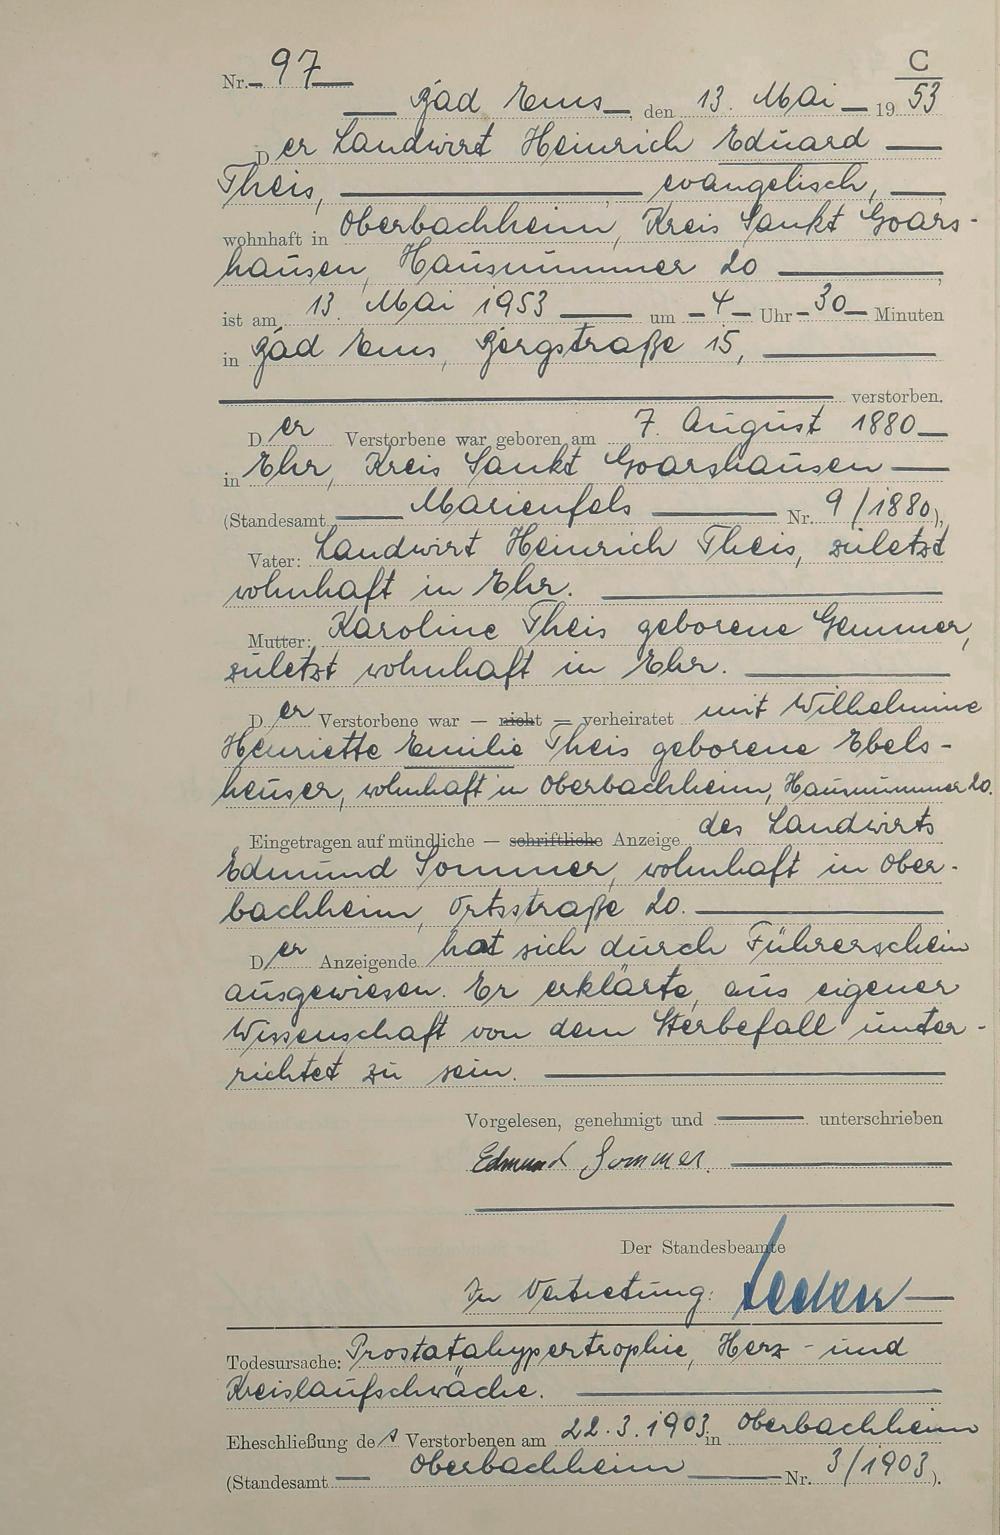 C
Nr. 97
Bad Ems, den 13. Mai 19 53
Der Landwirt Heinrich Eduard
Theis, evangelisch,
wohnhaft in Oberbachheim, Kreis Sankt Goars-
hausen, Hausnummer 20,
ist am 13. Mai 1953 um 4 Uhr 30 Minuten
in Bad Ems, Bergstraße 15,
verstorben.
Der Verstorbene war geboren am 7. August 1880
in Ehr, Kreis Sankt Goarshausen
(Standesamt Marienfels Nr. 9/1880),
Vater: Landwirt Heinrich Theis, zuletzt
wohnhaft in Ehr.
Mutter: Karoline Theis geborene Gemmer,
zuletzt wohnhaft in Ehr.
Der Verstorbene war — nicht — verheiratet mit Wilhelmine
Henriette Emilie Theis geborene Ebels-
heuser, wohnhaft in Oberbachheim, Hausnummer 20.
Eingetragen auf mündliche — schriftliche Anzeige des Landwirts
Edmund Sommer, wohnhaft in Ober-
bachheim, Ortsstraße 20.
Der Anzeigende hat sich durch Führerschein
ausgewiesen. Er erklärte, aus eigener
Wissenschaft von dem Sterbefall unter-
richtet zu sein.
Vorgelesen, genehmigt und unterschrieben
Edmund Sommer.
Der Standesbeamte
In Vertretung:
Todesursache: Prostatahypertrophie, Herz- und
Kreislaufschwäche.
Eheschließung des Verstorbenen am 22.3.1903 in Oberbachheim
(Standesamt Oberbachheim Nr. 3/1903).